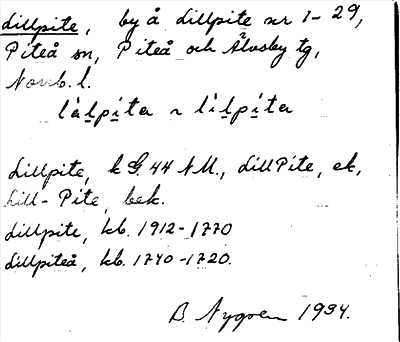 Lillpite, by å Lillpite nr 1-29,
Piteå sn, Piteå och Älvsby tg,
Norrb. l.
lìlpìta ~ lìlpíta
Lillpite, k G. 44 NM., LillPite, ek,
Lill-Pite, bek.
Lillpite, kb. 1912-1770
Lillpiteå, kb. 1740-1720.
B. Nygren 1934.